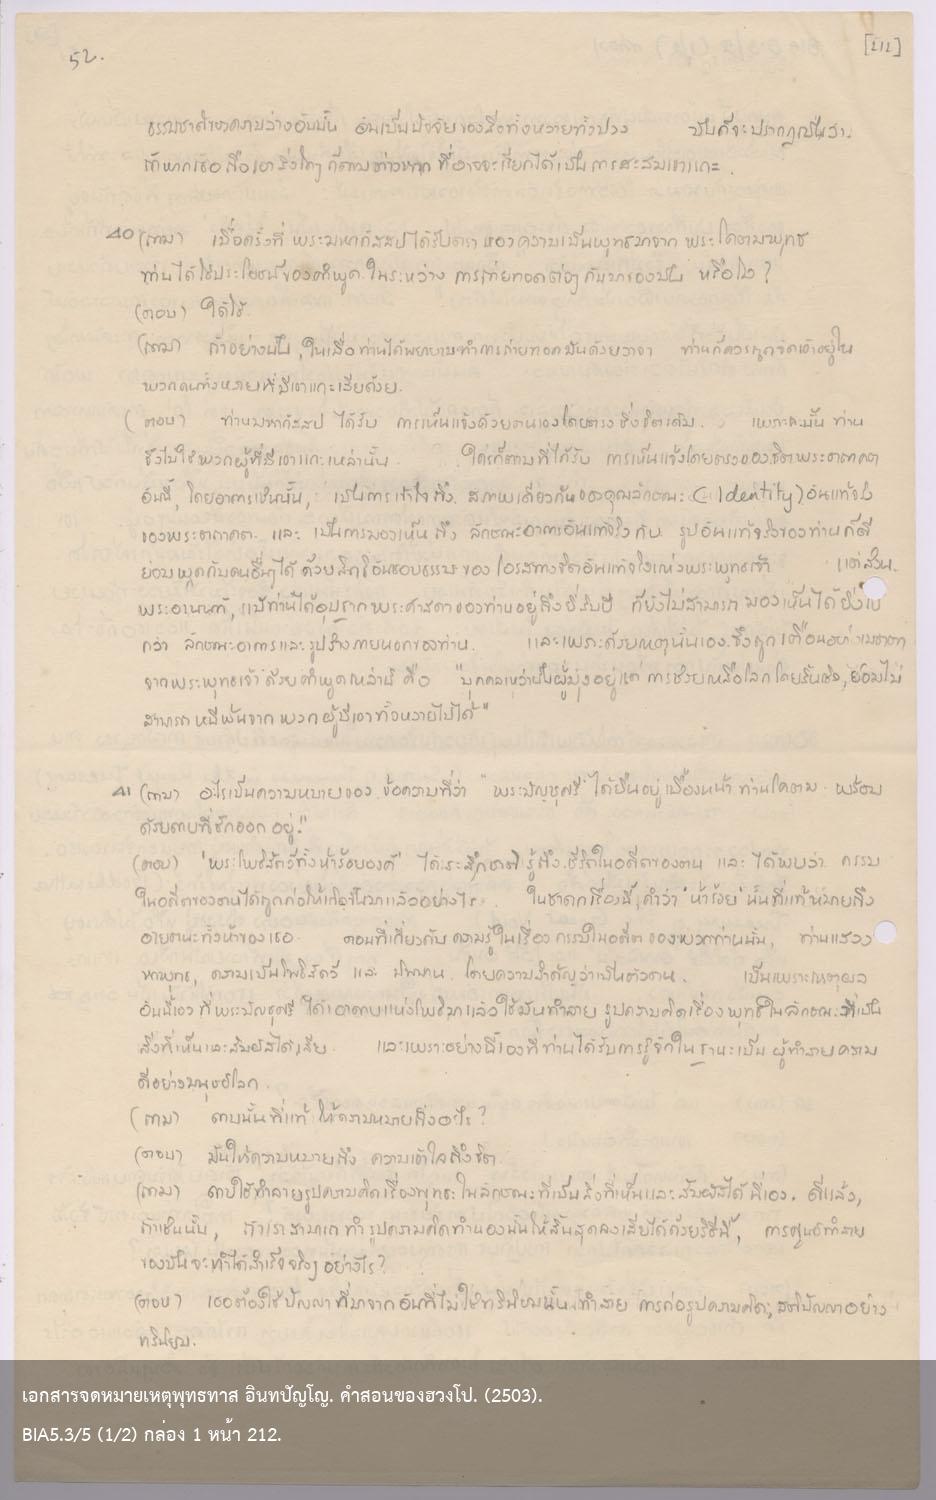 52.
[212]
ธรรมชาติของความว่างอันนั้น อันเป็นปัจจัยของสิ่งทั้งหลายทั้งปวง มันก็จะปรากฏเป็นเรา.
ถ้าหากเธอถือเอาสิ่งใดๆ ก็ตาม ที่อาจจะเรียกได้เป็นการสะสมเอาแกะ.
40 (ถาม) เมื่อครั้งที่ พระมหากัสสปได้รับตรา ของความเป็นพุทธมาจาก พระโคตมะพุทธ
ท่านได้ใช้ประโยชน์ของคำพูด ในระหว่าง การถ่ายทอดต่อๆ กันมาของมัน หรือไม่ ?
(ตอบ) ได้ใช้.
(ถาม) ถ้าอย่างนั้น, ในเมื่อท่านได้พยายามทำการถ่ายทอดมันด้วยวาจา ท่านก็ควรถูกจัดเข้าอยู่ใน
พวกคนทั้งหลายที่มีเขาแกะเสียด้วย.
(ตอบ) ท่านมหากัสสป ได้รับ การเห็นแจ้งด้วยตนเองโดยตรง ซึ่งจิตเดิม. เพราะฉะนั้น ท่าน
จึงไม่ใช่พวกผู้ที่มีเขาแกะเหล่านั้น. ใครก็ตามที่ได้รับ การเห็นแจ้งโดยตรงของจิตพระตถาคต
อันนี้, โดยอาการเช่นนั้น, เป็นการเข้าใจถึง สภาพเดียวกันของคุณลักษณะ (Identity) อันแท้จริง
ของพระตถาคต และ เป็นการมองเห็นถึง ลักษณะอาการอันแท้จริงกับ รูปอันแท้จริงของท่านก็ดี
ย่อมพูดกับคนอื่นๆ ได้ ด้วยสิทธิอันชอบธรรมของ โอรสทางจิตอันแท้จริงแห่งพระพุทธเจ้า แต่ส่วน
พระอานนท์, แม้ท่านได้อุปฐากพระศาสดาของท่านอยู่ถึงยี่สิบปี ก็ยังไม่สามารถมองเห็นได้ยิ่งไป
กว่า ลักษณะอาการและรูปร่างภายนอกของท่าน. และเพราะด้วยเหตุนั้นเอง จึงถูกเตือน
จากพระพุทธเจ้า ด้วยคำพูดเหล่านี้ คือ "บุคคลเหล่านั้นผู้มุ่งอยู่แต่ การช่วยเหลือโลกโดยสิ้นเชิง, ย่อมไม่
สามารถ หนีพ้นจาก พวกผู้มีเขาทั้งหลายไปได้"
41 (ถาม) อะไรเป็นความหมายของ ข้อความที่ว่า "พระมัญชุศรี ได้ยืนอยู่เบื้องหน้า ท่านโคตม พร้อม
ด้วยดาบที่ชักออก อยู่."
(ตอบ) 'พระโพธิสัตว์ทั้งห้าร้อยองค์' ได้ระลึกชาติ รู้ถึงชีวิตในอดีตของตน และ ได้พบว่า กรรม
ในอดีตของตนได้ถูกก่อให้เกิดขึ้นมาแล้วอย่างไร. ในชาดกเรื่องนี้, คำว่า 'ห้าร้อย' นั้นที่แท้หมายถึง
อายตนะทั้งห้าของเธอ. ตอนที่เกี่ยวกับ ความรู้ในเรื่อง กรรมในอดีต ของพวกท่านนั้น, ท่านแสวง
หาพุทธ, ความเป็นโพธิสัตว์ และ นิพพาน โดยความสำคัญว่าเป็นตัวตน. เป็นเพราะเหตุผล
อันนี้เอง ที่พระมัญชุศรี ได้เอาดาบแห่งโพธิมาแล้วใช้มันทำลาย รูปความคิดเรื่องพุทธในลักษณะที่เป็น
สิ่งที่เห็นและสัมผัสได้, เสีย. และเพราะอย่างนี้เองที่ท่านได้รับการรู้จักใน ฐานะเป็น ผู้ทำลายความ
ดีอย่างมนุษย์โลก.
(ถาม) ดาบนั้นที่แท้ ให้ความหมายถึงอะไร ?
(ตอบ) มันให้ความหมายถึง ความเข้าใจถึงจิต.
(ถาม) ดาบใช้ทำลายรูปความคิดเรื่องพุทธะ ในลักษณะที่เป็นสิ่งที่เห็นและสัมผัสได้ นี้เอง. ดีแล้ว,
ถ้าเช่นนั้น, ถ้าเราสามารถ ทำรูปความคิดทำนองนั้นให้สิ้นสุดลงเสียได้ด้วยวิธีนี้, การทำลาย
ของมันจะทำได้สำเร็จจริงๆ อย่างไร ?
(ตอบ) เธอต้องใช้ปัญญา ที่มาจากอันที่ไม่ใช่ทวินิยมนั้น ทำลาย การก่อรูปความคิด, สติปัญญาอย่าง
ทวินิยม.
เอกสารจดหมายเหตุพุทธทาส อินทปัญโญ. คำสอนของฮวงโป. (2503).
BIA5.3/5 (1/2) กล่อง 1 หน้า 212.